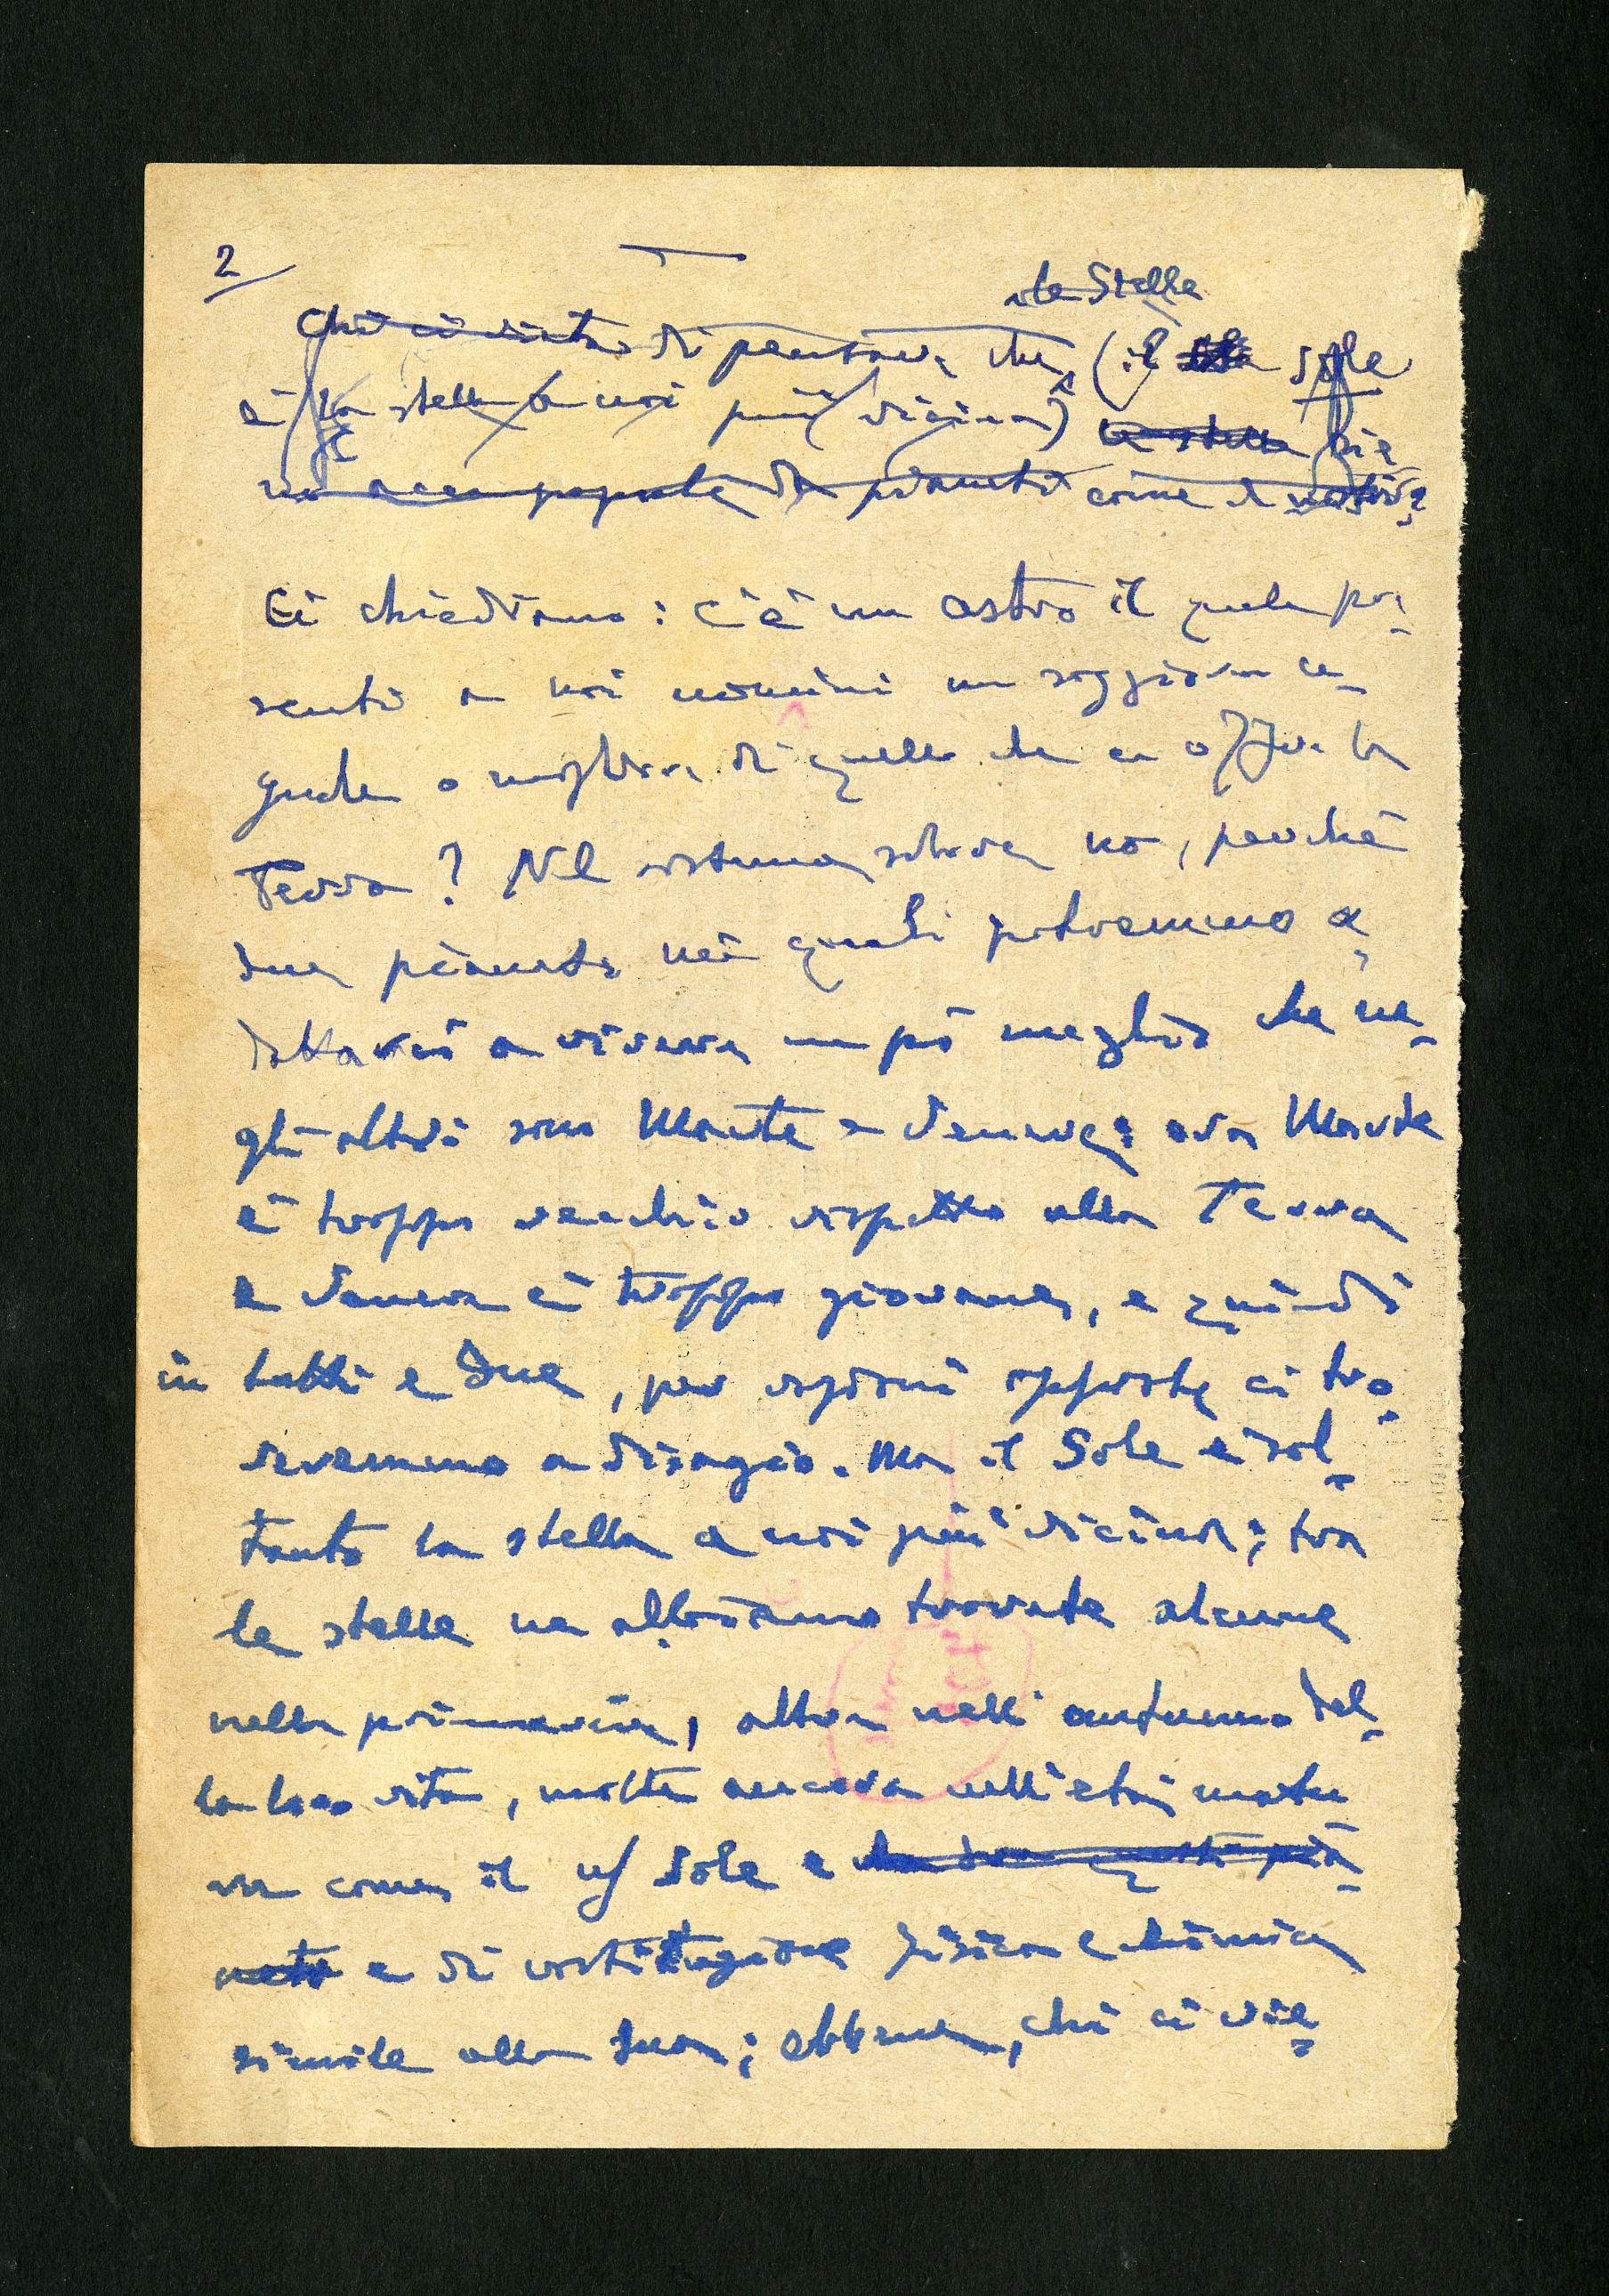 2
le Stelle
Chi ci vieta di pensare che, (il sole
è la stella a noi più vicina) le stelle sie
no accompagnate da pianeti come il nostro?
Ci chiediamo: c'è un astro il quale pre-
senti a noi uomini un soggiorno u-
guale o migliore di quello che ci offre la
Terra? Nel sistema solare no, perché
due pianeti nei quali potremmo a-
dattarci a vivere un pò meglio che ne-
gli altri sono Marte e Venere: ora Marte
è troppo vecchio rispetto alla Terra
e Venere è troppo giovane, e quindi
in tutti e due, per ragioni opposte ci tro-
veremmo a disagio. Ma il Sole è sol-
tanto la stella a noi più vicina; tra
le stelle ne abbiamo trovate alcune
nella primavera, altre nell'autunno del-
la loro vita, molte ancora nell'età matu
ra come il n/ Sole e questi pia-
neti e di costituzione fisica e chimica
simile alla sua; ebbene, chi ci vie-